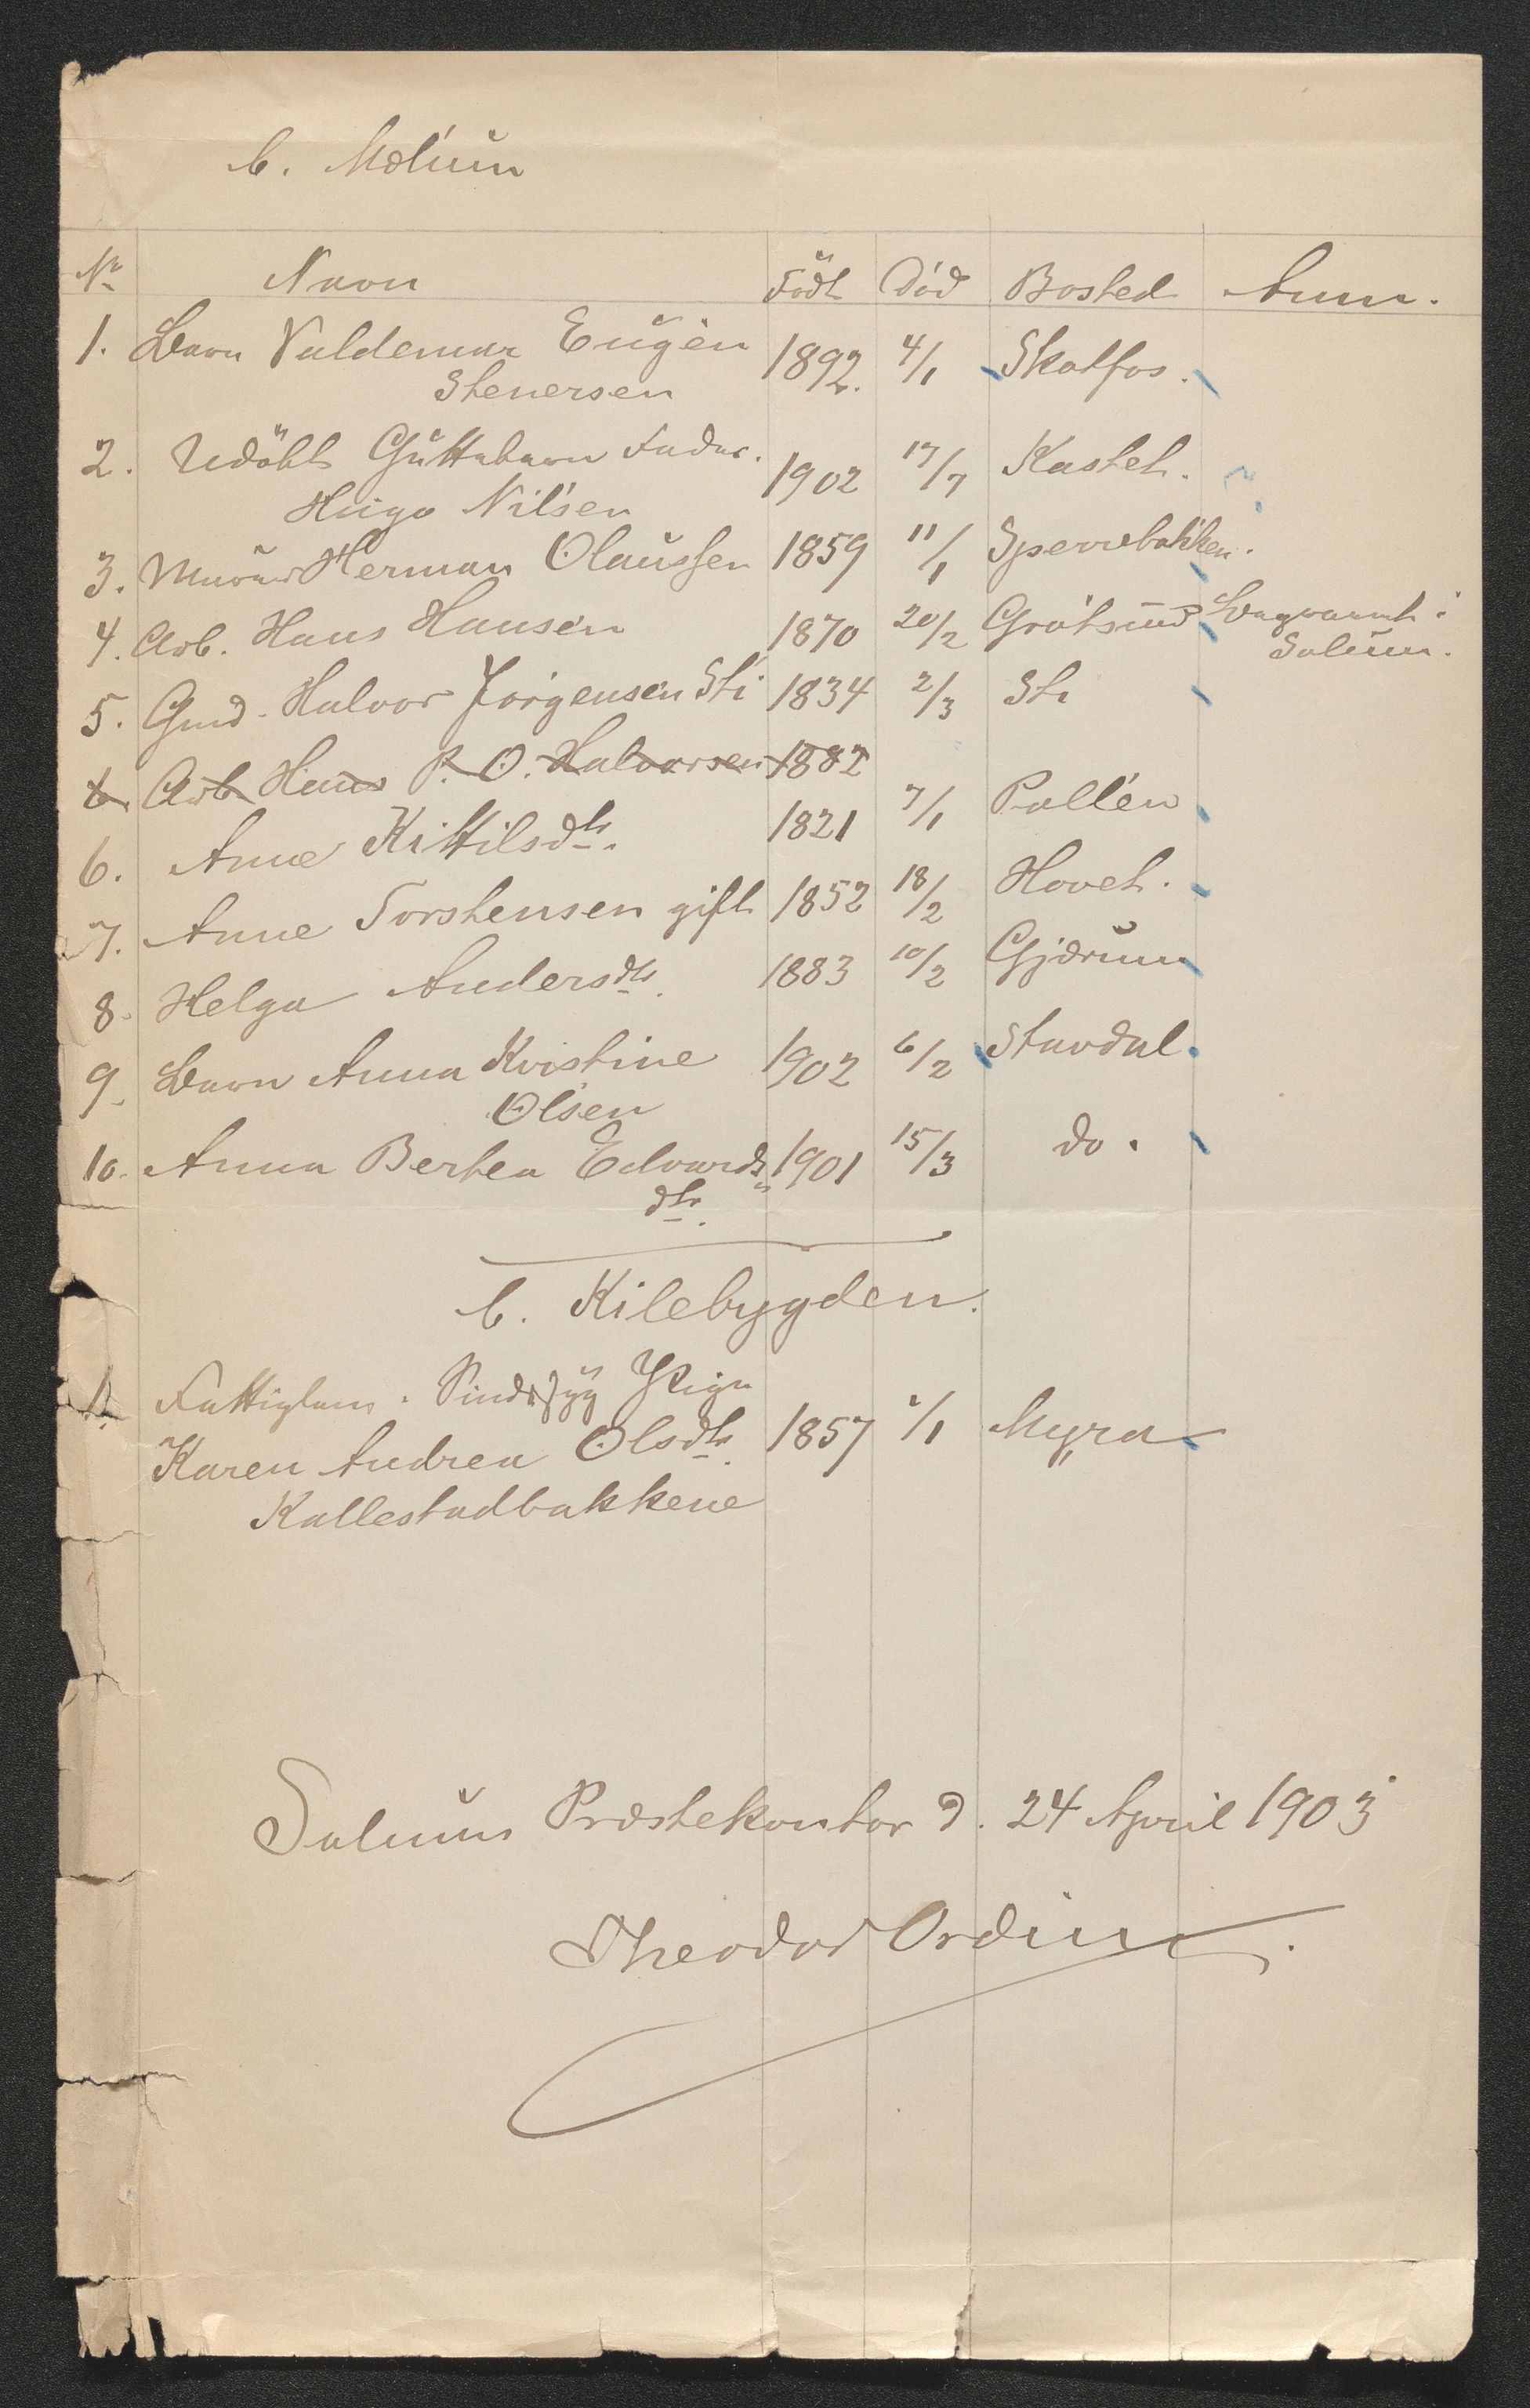 b. Mælum
No Navn Født Død Bosted Anm.
1. Barn Valdemar Eugen 1892. 4/1 Skotfos.
Stenersen
2. Udøbt Guttebarn Fader. 1902 17/7 Kastet.
Hugo Nilsen
3. Murer Herman Olaussen 1859 11/1 Sperrebakken.
4. Arb. Hans Hansen 1870 20/2 Gråtsund Begravet i
Solum.
5. Gmd. Halvor Jørgensen Sti 1834 2/3 Sti
6. Arb. Hans P. O. Halvorsen 1882
6. Anne Kittilsdtr. 1821 7/1 Pollen
7. Anne Torstensen gift 1852 18/2 Hovet.
8. Helga Andersdtr. 1883 10/2 Gjærum
9. Barn Anna Kristine 1902 6/2 Stavdal.
Olsen
10. Anna Bertea Edvards 1901 15/3 do.
dtr.
c. Kilebygden.
1. Fattiglem. Sindssyg Pige
Karen Andrea Olsdtr. 1857 /1 Myra
Kallestadbakkene
Solum Præstekontor d. 24 April 1903
Theodor Ording.